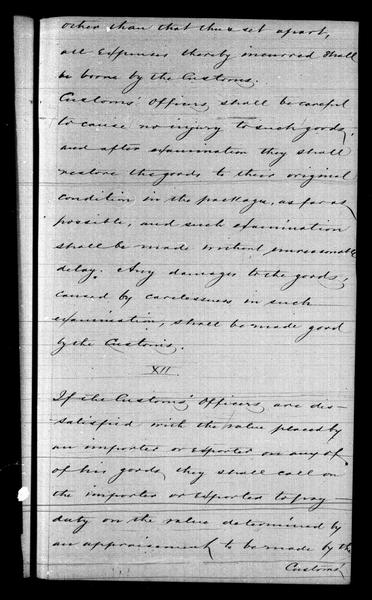 other than that thus set apart,
all expenses thereby incurred shall
be borne by the Customs.
Customs' Officers shall be careful
to cause no injury to such goods,
and after examination they shall
restore the goods to their original
condition in the packages, as far as
possible, and such examination
shall be made without unreasonable
delay. Any damages to the goods,
caused by carelessness in such
examination, shall be made good
by the Customs.
XII
If the Customs' Officers are dis-
satisfied with the value placed by
an importer or exporter on any of
of his goods, they shall call on
the importer or exporter to pay
duty on the value determined by
an appraisement, to be made by the
Customs'